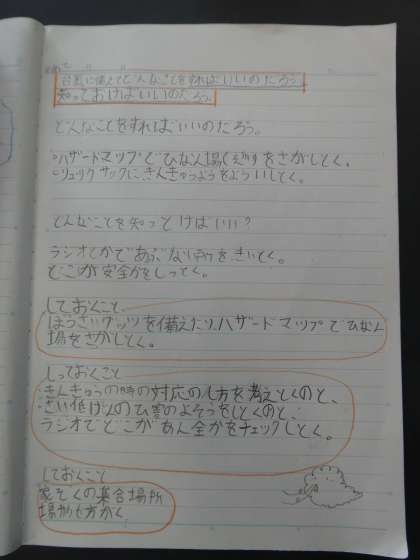 台風に備えてどんなことをすればいいのだろう。
知っておけばいいのだろう。
どんなことをすればいいのだろう。
・ハザードマップでひなん場しょをさがしとく。
・リュックサックにきんきゅうようをよういしとく。
どんなことを知っとけばいい?
ラジオとかであぶないところをきいとく。
どこが安全かをしっとく。
しておくこと
ぼうさいグッツを備えたり、ハザードマップでひなん
場をさがしとく。
しっておくこと
・きんきゅうの時の対応のし方を考えとくのと、
・さい低げんのひ害のよそうをしとくのと、
ラジオでどこがあん全かをチェックしとく。
しておくこと
家ぞくの集合場所